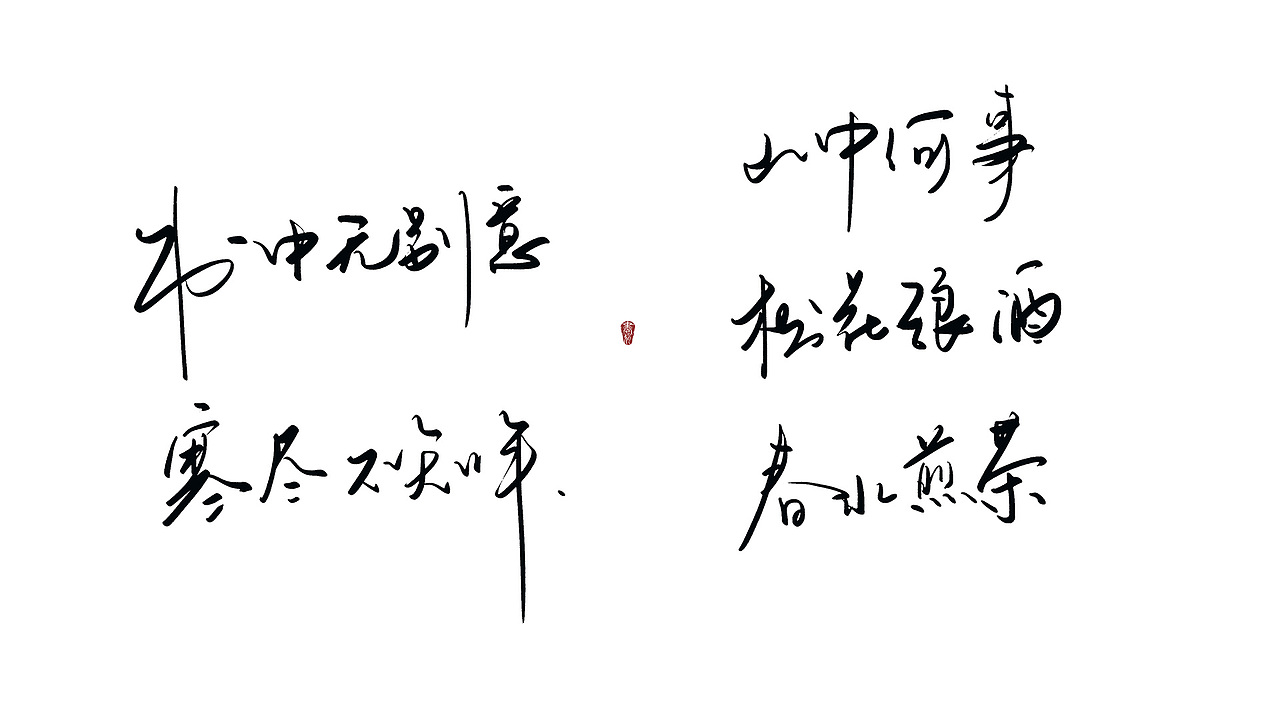 书中无别意
寒尽不知年.
山中何事
松花酿酒
春水煎茶